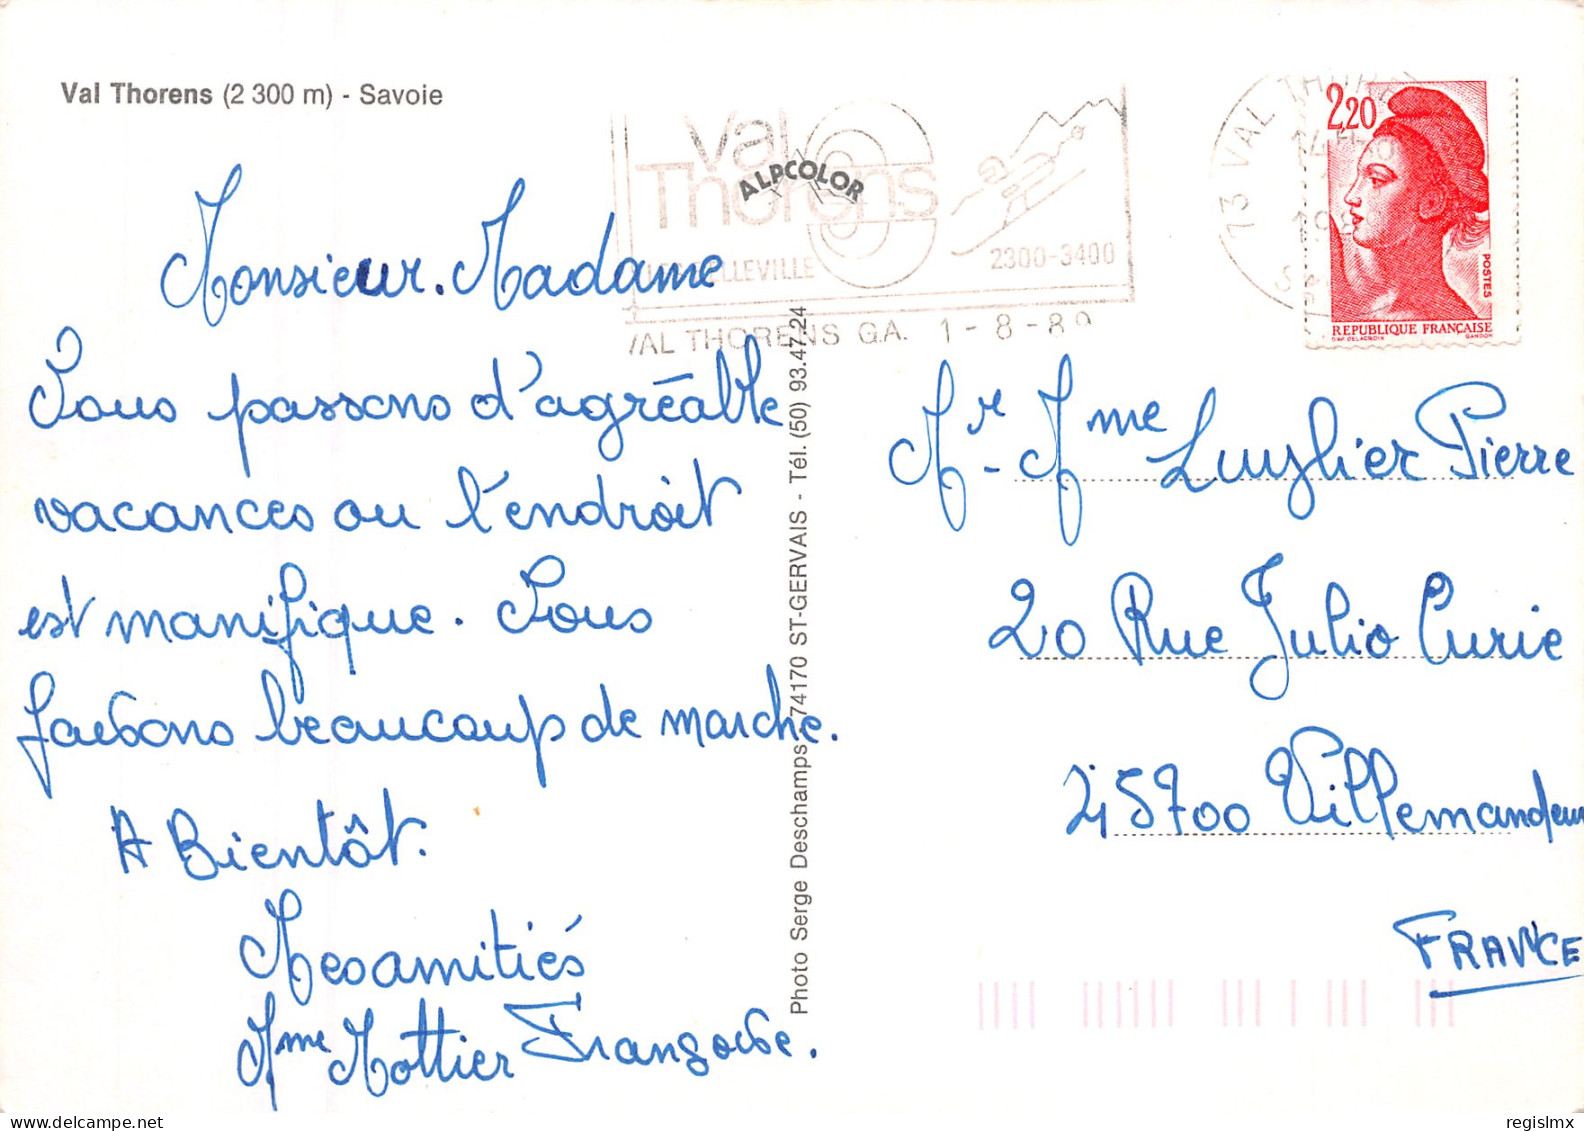 Val Thorens (2 300 m) - Savoie
Val
Thorens
ALPCOLOR
BELLEVILLE
2300-3400
VAL THORENS G.A. 1-8-89
73 VAL THORE
2,20
POSTES
REPUBLIQUE FRANÇAISE
D'AP. DELACROIX GANDON
Monsieur. Madame
Nous passons d'agréable
vacances ou l'endroit
est manifique. Nous
faisons beaucoup de marche.
A Bientôt.
Mesamitiés
Mme Mottier Françoise.
Photo Serge Deschamps - 74170 ST-GERVAIS - Tél. (50) 93.47.24
Mr - Mme Luzlier Pierre
20 Rue Julio Curie
45700 Villemandeur
FRANCE
regislmx